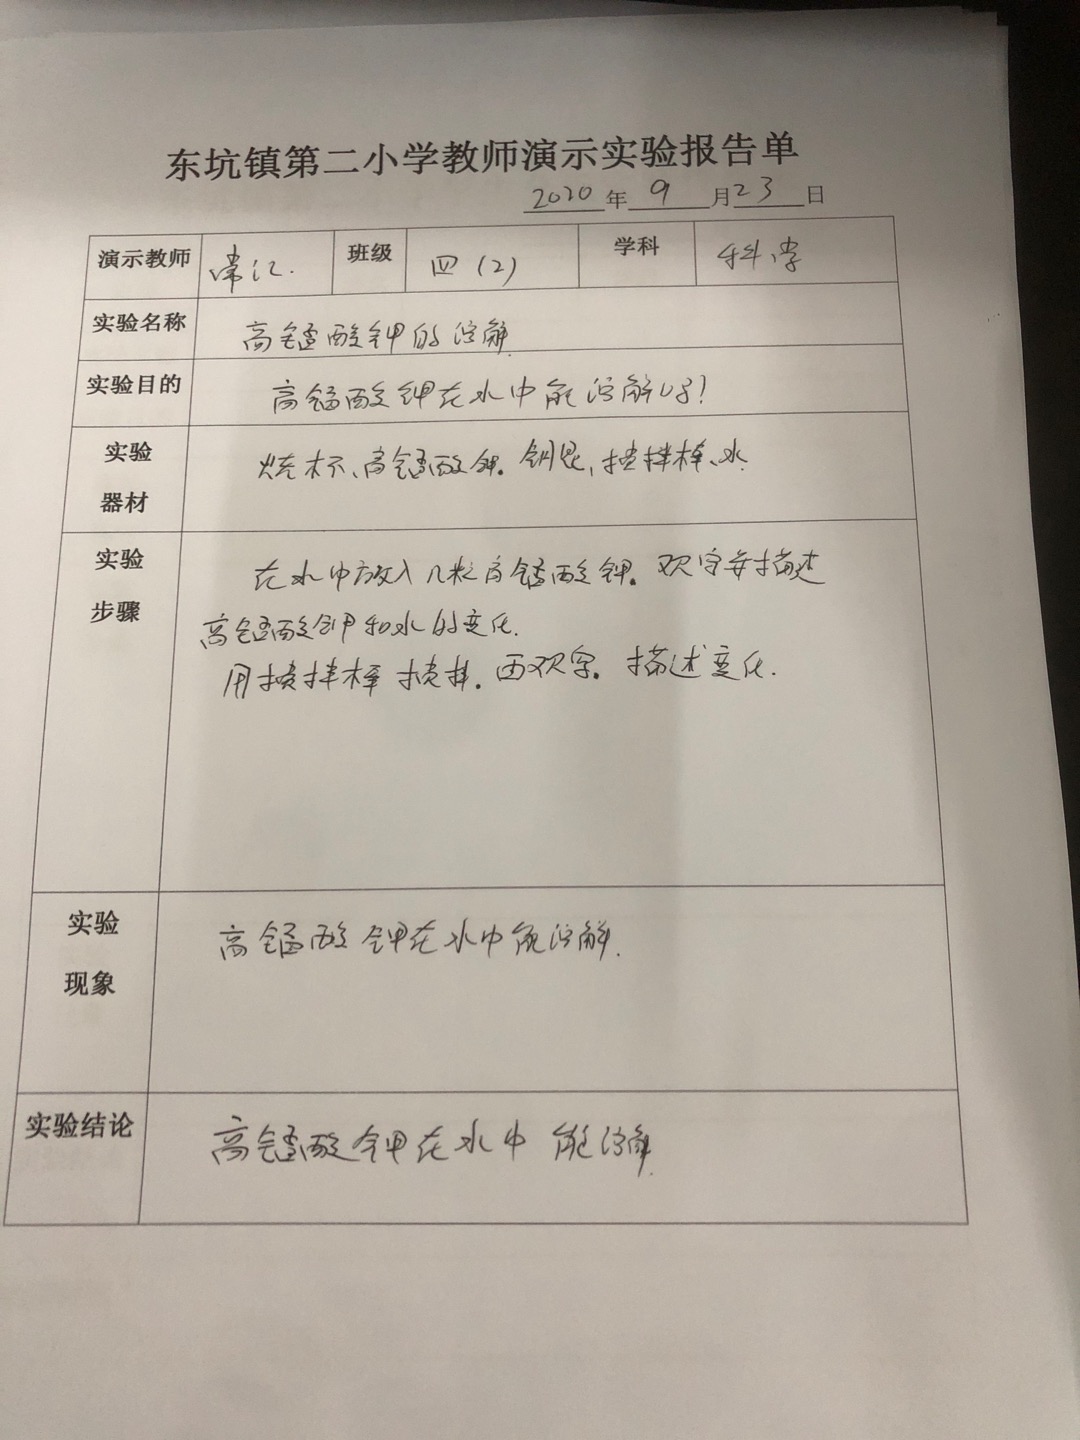 东坑镇第二小学教师演示实验报告单
2020年9月23日
演示教师 班级 四(2) 学科 科学
实验名称 高锰酸钾的溶解
实验目的 高锰酸钾在水中能溶解吗?
实验
器材
烧杯、高锰酸钾、钥匙、搅拌棒、水
实验
步骤
在水中放入几粒高锰酸钾。观察并描述
高锰酸钾和水的变化.
用搅拌棒搅拌。再观察。描述变化.
实验
现象
高锰酸钾在水中能溶解.
实验结论 高锰酸钾在水中能溶解